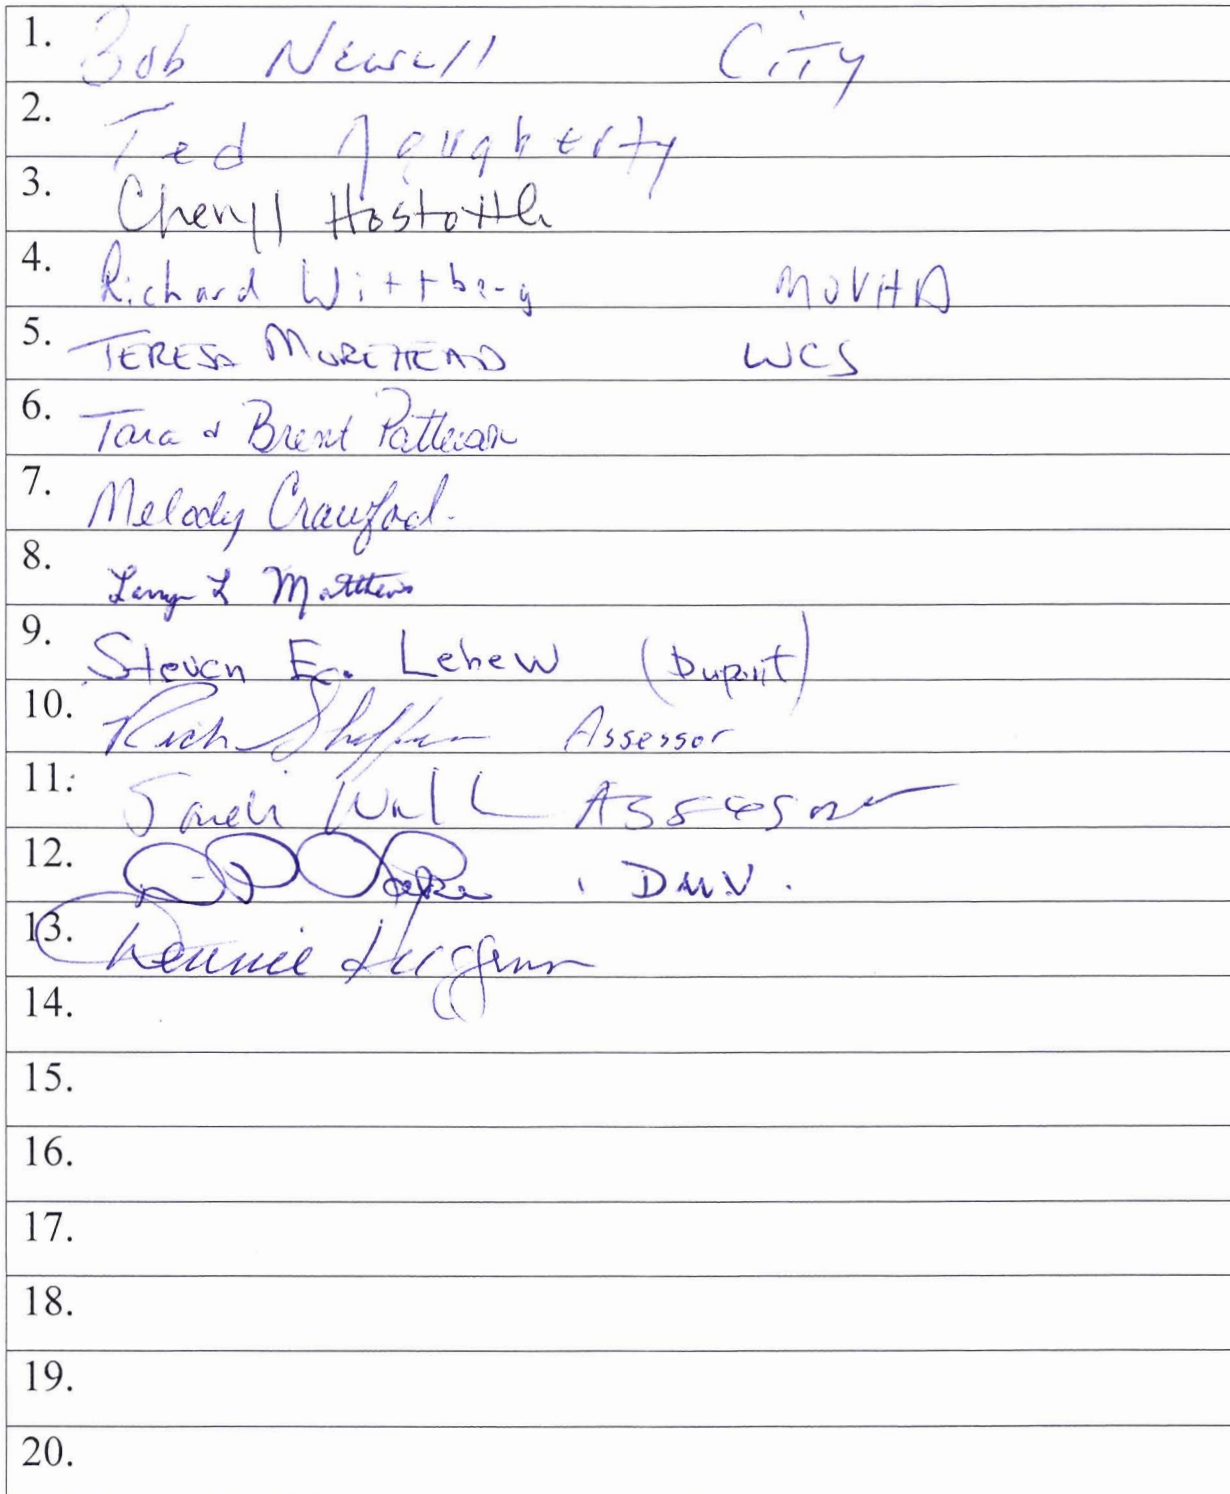 1. Bob Newell City
2. Ted Daugherty
3. Cheryl Hostottle
4. Richard Wittberg MOVHD
5. TERESA MOREHEAD WCS
6. Tara & Brent Patterson
7. Melody Crawford.
8. Larry L Matthews
9. Steven E. Lehew (Dupont)
10. Rich Shaffer Assessor
11. Wall Assessor
12. DMV.
13.
14.
15.
16.
17.
18.
19.
20.